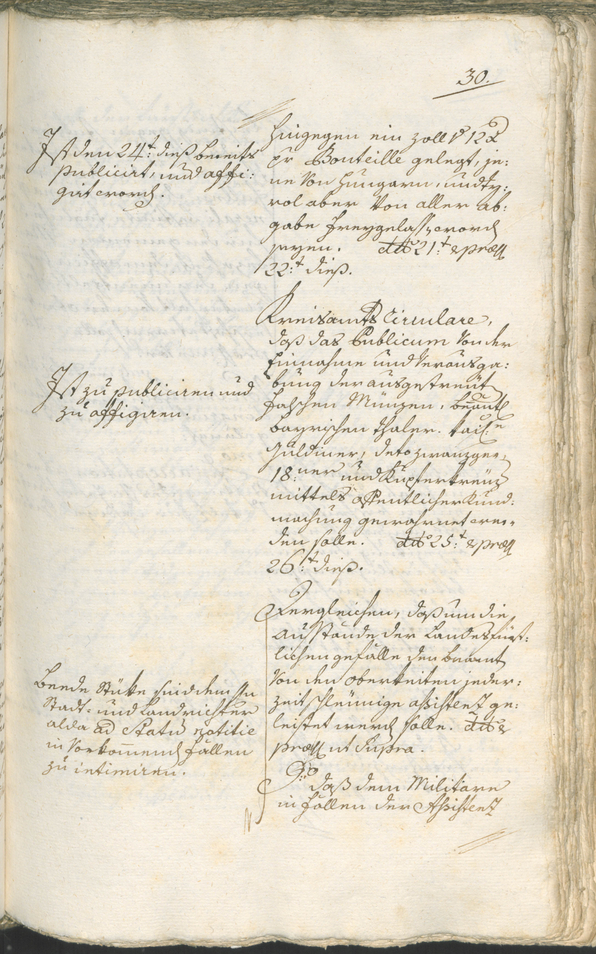 30.
Ist den 24t: dieß bereits
publicirt, und affi-
girt word.
hingegen ein Zoll pr 12 x
pr Bouteille gelegt, je-
ne von Hungarn, und Ty-
rol aber von aller ab-
gabe freygelassen word
seyen. dtto 21t: & præs
22t: dieß.
Ist zu publiciren und
zu affigiren.
Kreisamts Circulare,
daß das Publicum von der
Einnahme und Verausga-
bung der ausgestreut
falschen Münzen, benant
bayrischen Thaler,
Guldiner, deto zwanzger,
18ner und Kupferkreuz
mittels öffentlicher Kund-
machung gewarnet wer-
den solle. dtto 25t: & præs
26t: dieß.
Beede Stüke sind dem
Stadt- und Landrichter
alda ad statum notitiæ
in vorkommend fällen
zu intimiren.
Dergleichen, daß um die
Ausstände der Landesfürst-
lichen gefälle den beamt
von den Oberkeiten jeder-
zeit schleunige assistenz ge-
leistet werd solle. dtto &
præs ut supra.
daß dem Militare
in fällen der Assistenz